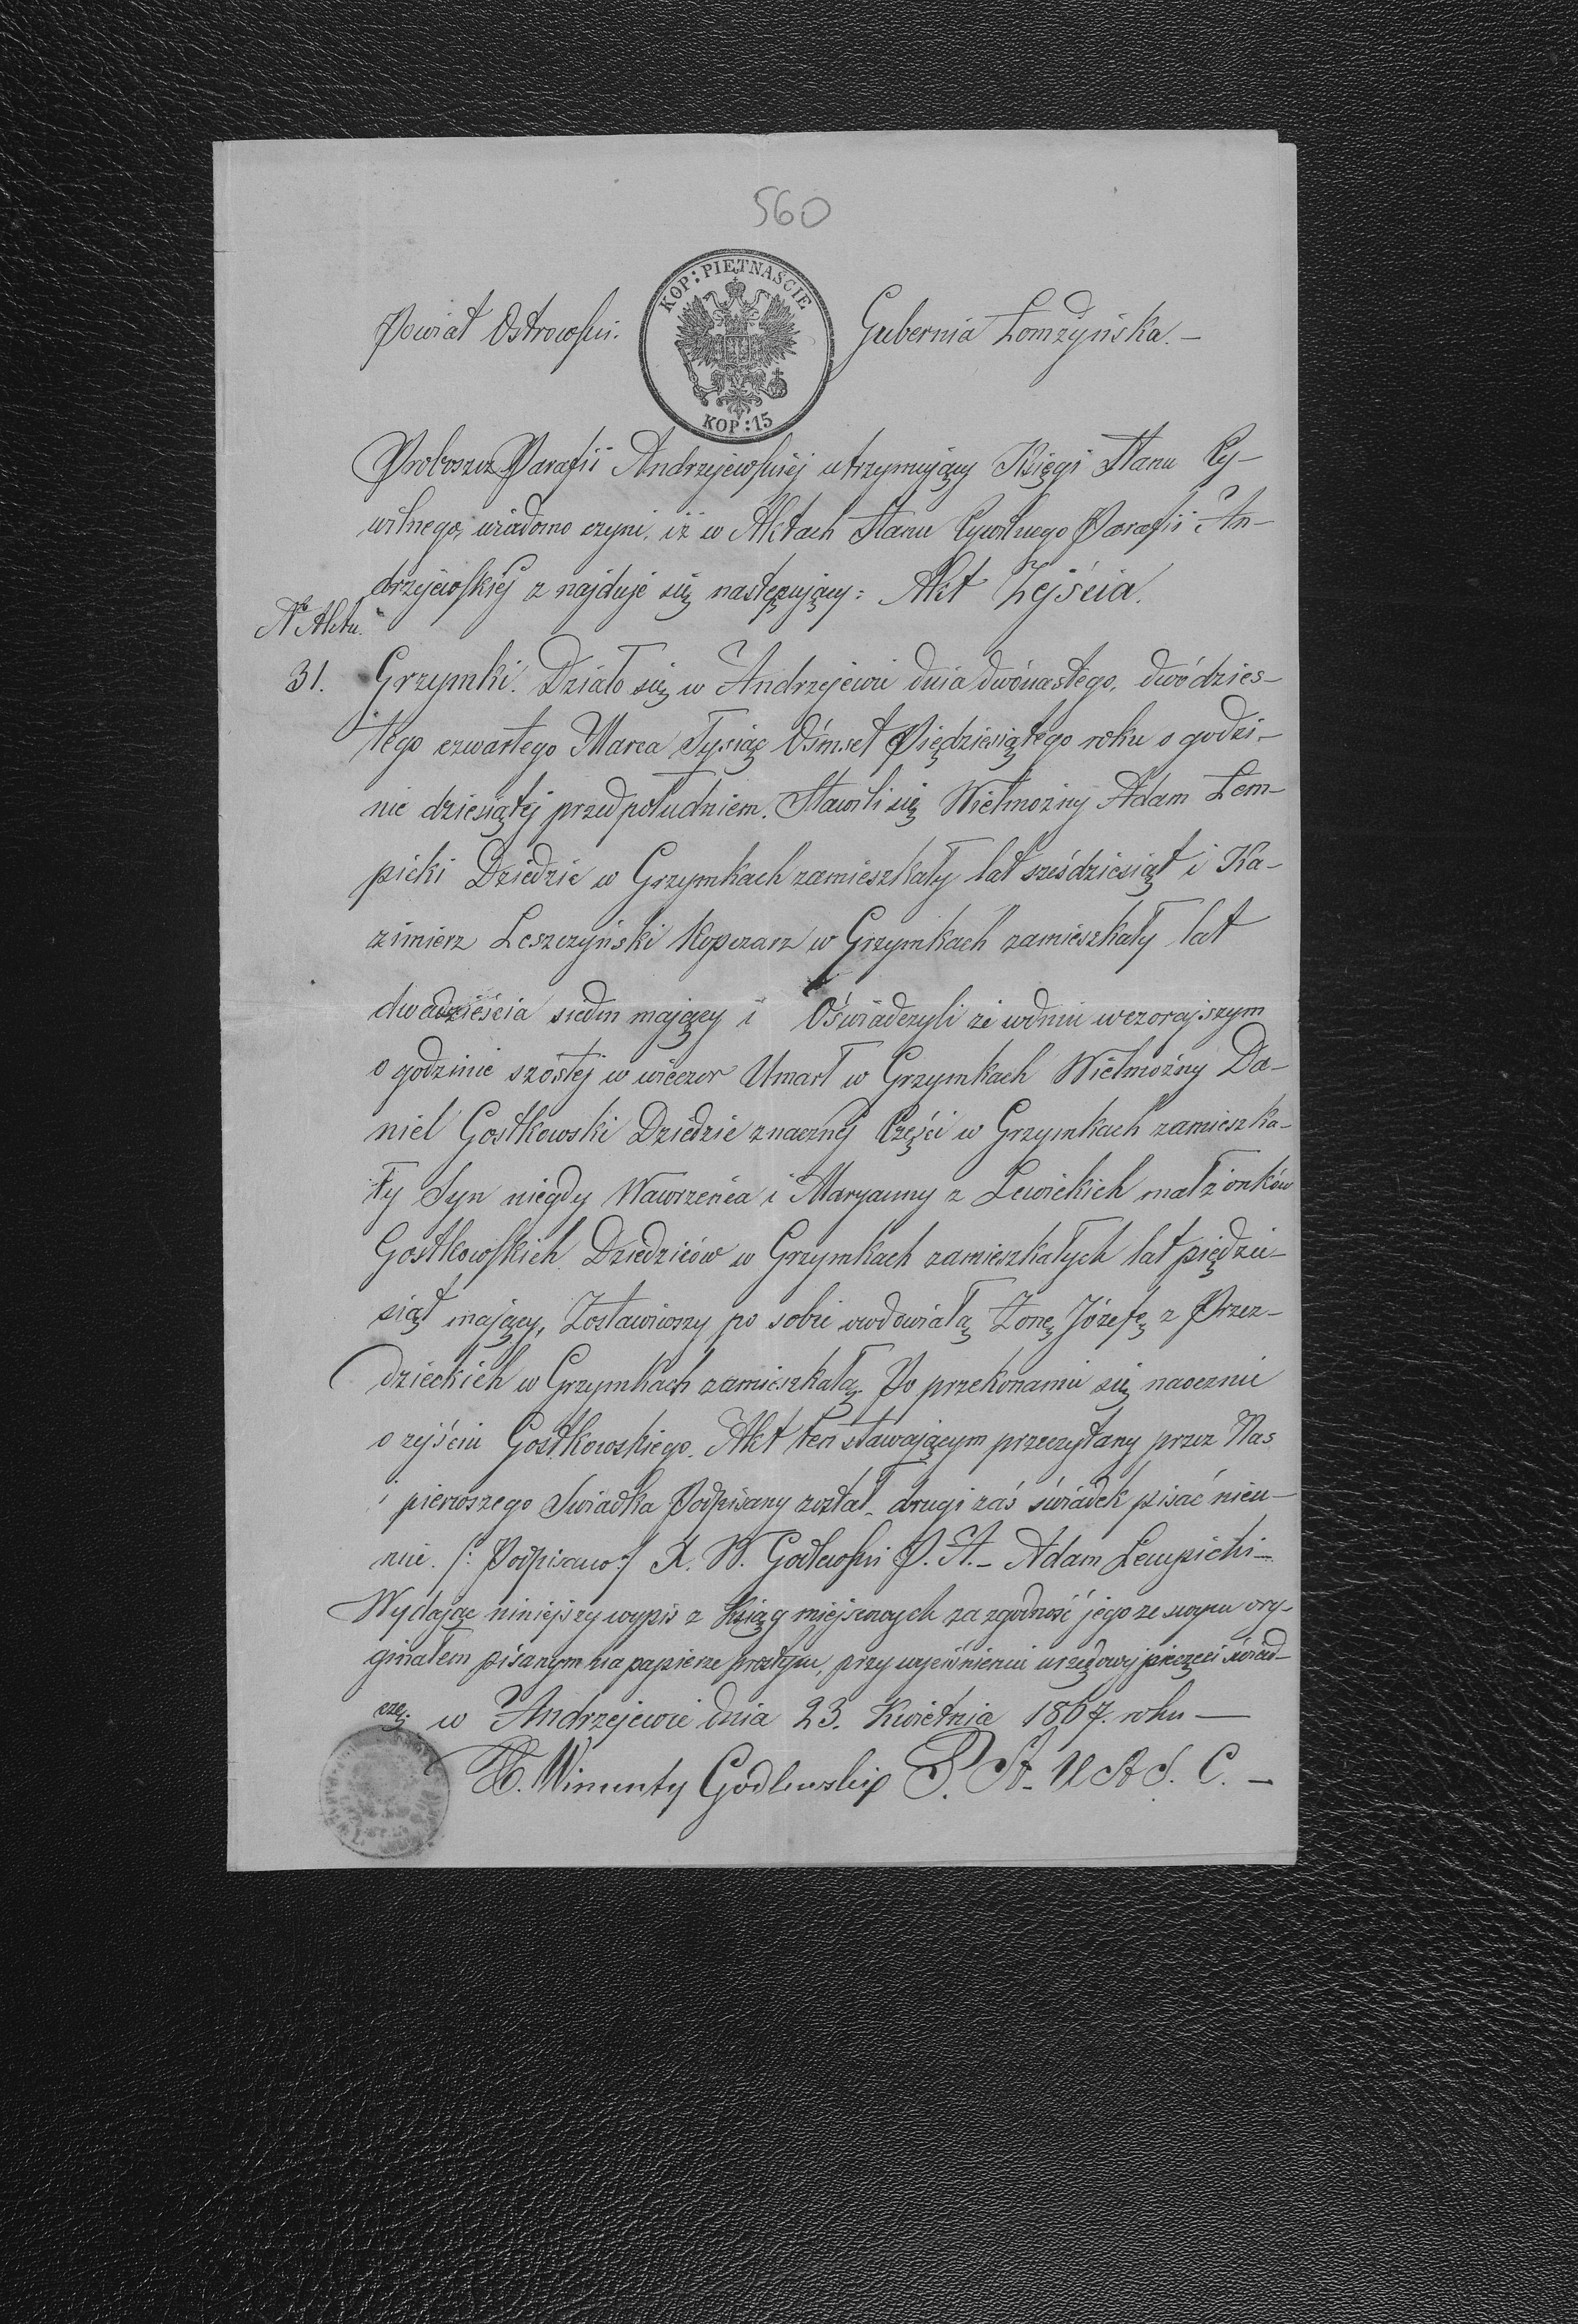 560
KOP: PIĘTNAŚCIE
Powiat Ostrowski. Gubernia Łomżyńska. –
KOP: 15
Proboszcz Parafii Andrzejewskiej utrzymujący Księgi Stanu Cy-
wilnego, wiadomo czyni, iż w Aktach Stanu Cywilnego Parafii An-
drzejewskiej z najduje się następujący: Akt Zejścia.
N° Aktu.
31. Grzymki. Działo się w Andrzejewie dnia dwónastego, dwódzies-
tego czwartego Marca Tysiąc Ośmset Piędziesiątego roku o godzi-
nie dziesiątej przed południem. Stawili się Wielmożny Adam Lem-
picki Dziedzic w Grzymkach zamieszkały lat sześdziesiąt i Ka-
zimierz Leszczyński Kopczarz w Grzymkach zamieszkały lat
dwadzieścia siedm mający i Oświadczyli że wdniu wczorajszym
o godzinie szóstej w wieczor Umarł w Grzymkach Wielmożny Da-
niel Gostkowski Dziedzic znacznej Części w Grzymkach zamieszka-
ły Syn niegdy Wawrzeńca i Maryanny z Lewickich małżonków
Gostkowskich Dziedziców w Grzymkach zamieszkałych lat pięździe-
siąt mający, Zostawiwszy po sobie owdowiałą Żonę Józefę z Przez-
dzieckich w Grzymkach zamieszkałą. Po przekonaniu się naocznie
o zejściu Gostkowskiego. Akt ten stawającym przeczytany przez Nas
i pierwszego Swiadka Podpisany został – drugi zaś świadek pisać nieu-
mie. /: Podpisano :/ X. W. Godlewski P. A. – Adam Lempicki –
Wydając niniejszy wypis z Ksiąg miejscowych za zgodność jego ze swym ory-
ginałem pisanym na papierze prostym, przy wyciśnieniu urzędowej pieczęci świad-
czę. w Andrzejewie dnia 23. Kwietnia 1867. roku —
X. Wincenty Godlewski P. A. U A S. C. –